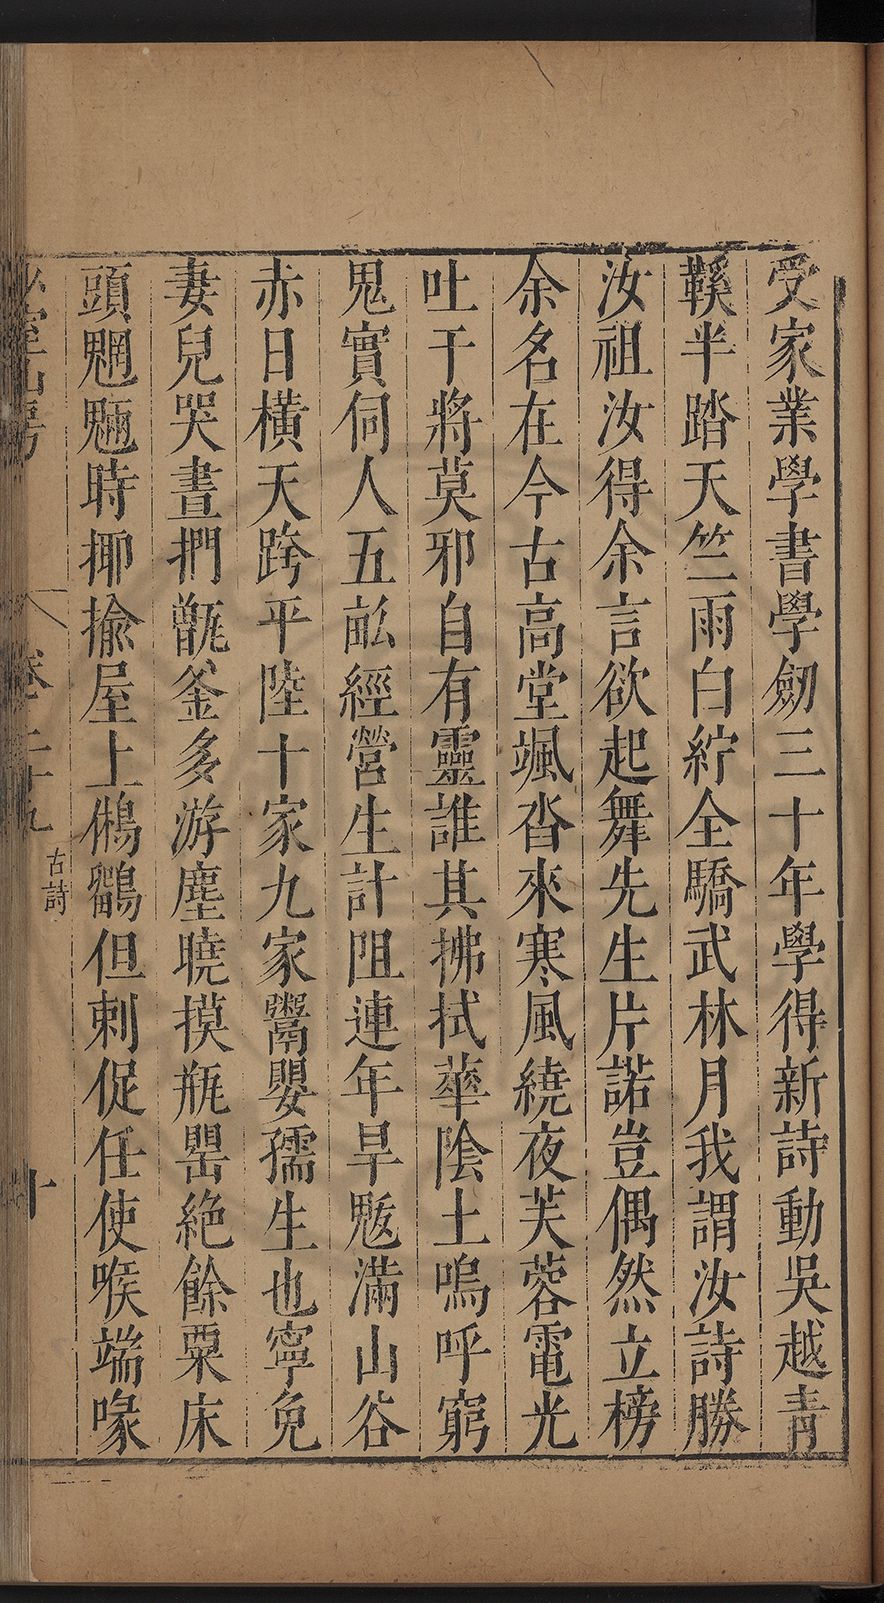 受家業學書學劒三十年學得新詩動吳越青
鞵半踏天竺雨白紵全驕武林月我謂汝詩勝
汝祖汝得余言欲起舞先生片諾豈偶然立榜
余名在今古高堂颯沓來寒風繞夜芙蓉電光
吐干將莫邪自有靈誰其拂拭華陰土嗚呼窮
鬼實伺人五畝經營生計阻連年旱魃滿山谷
赤日橫天跨平陸十家九家鬻嬰孺生也寧免
妻兒哭晝捫甑釜多游塵曉摸瓶罌絕餘粟床
頭魍魎時揶揄屋上鵂鶹但刺促任使喉端喙
卷二十九
古詩
十